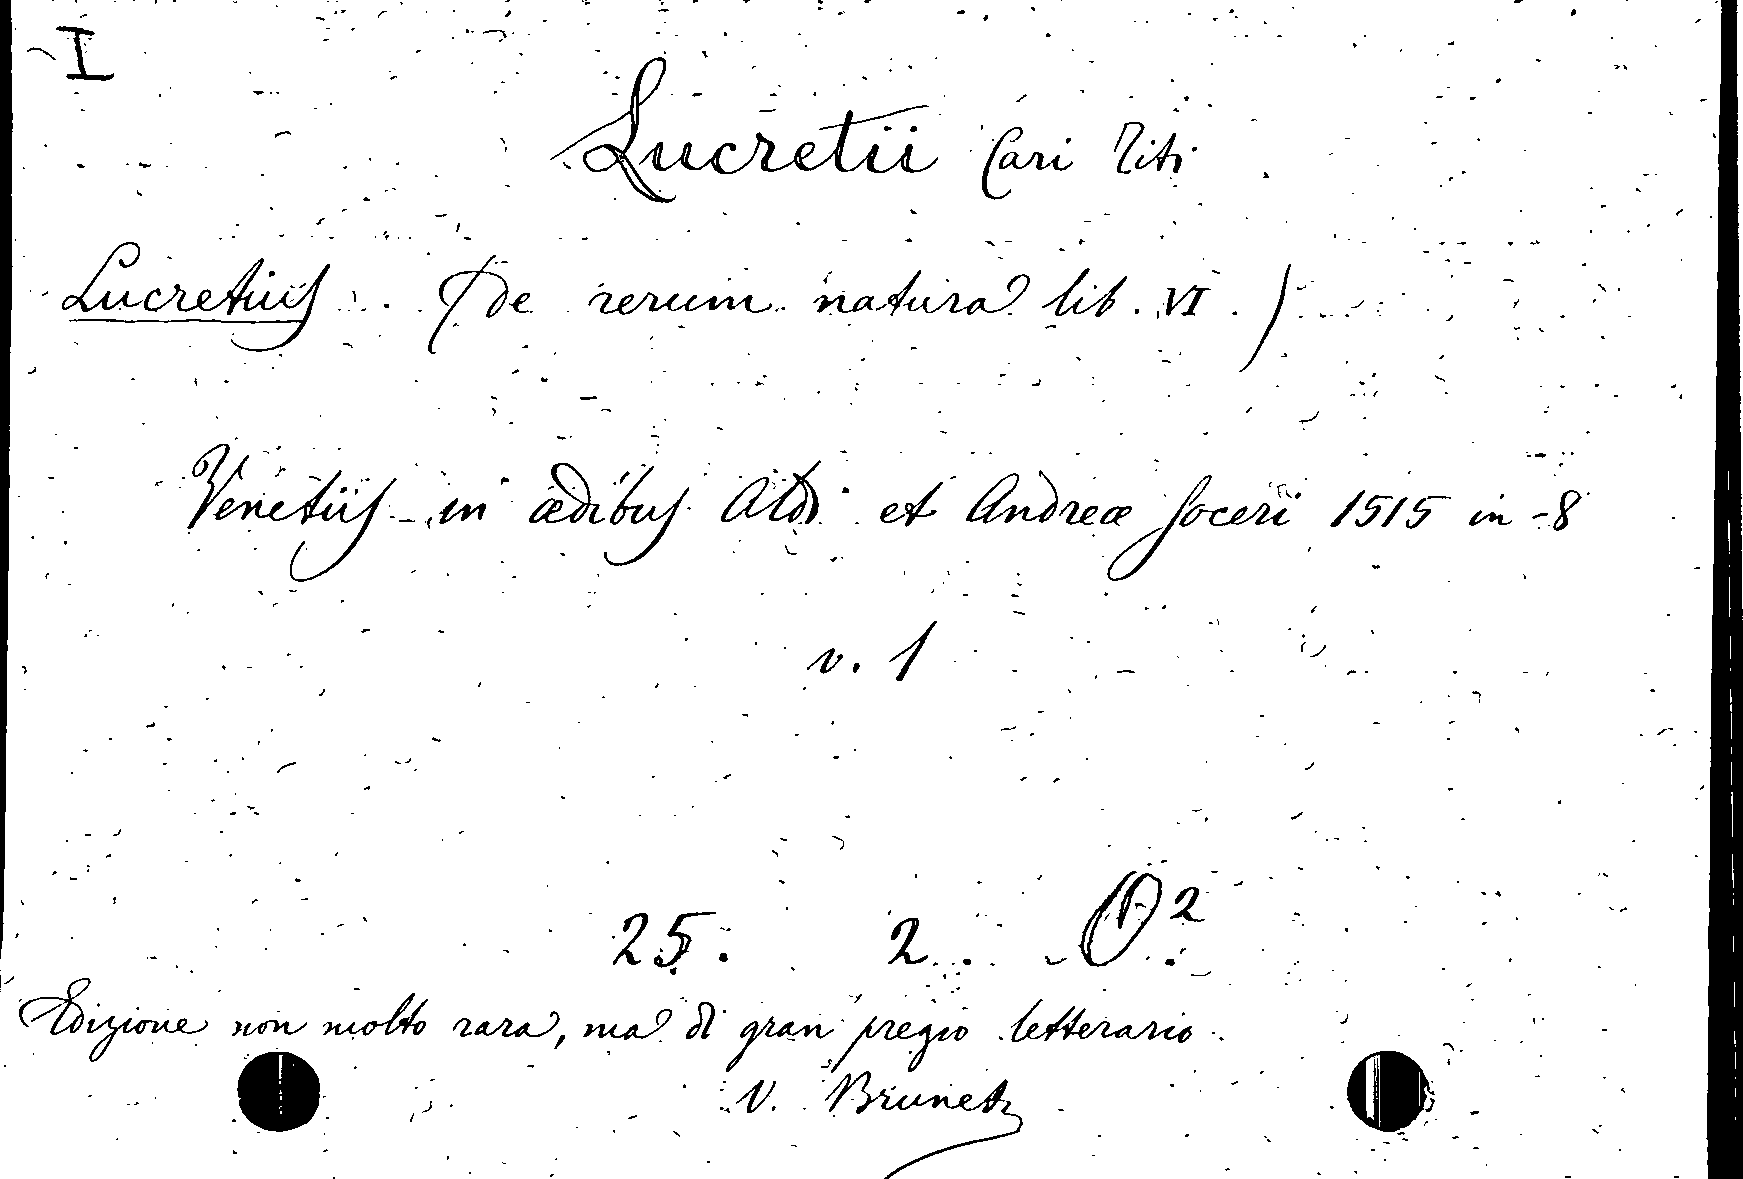 I
Lucretii Cari Titi
Lucretius. (De rerum natura lib. VI.)
Venetiis in ædibus Aldi et Andreæ soceri 1515 in-8
v. 1
25. 2. O².
Edizione non molto rara, ma di gran pregio letterario.
V. Brunet